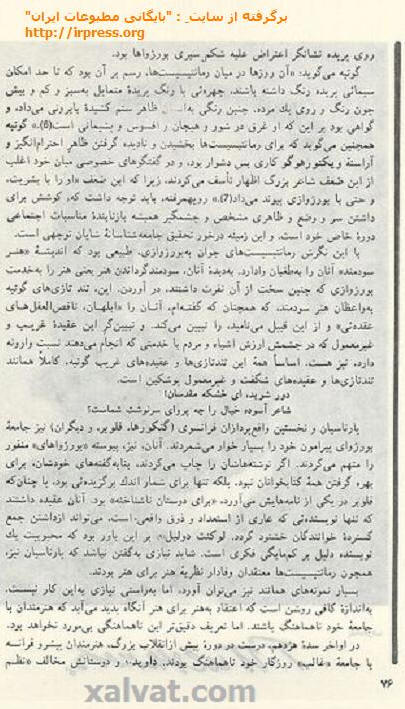 برگرفته از سایت : "بایگانی مطبوعات ایران"
http://irpress.org
روی بریده نشانگر اعتراض علیه شکم‌سیری بورژواها بود.
گوتیه می‌گوید: «آن روزها در میان رمانتیسیست‌ها، رسم بر آن بود که تا حد امکان
سیمائی پریده رنگ داشته باشند، چهره‌ئی با رنگ پریدهٔ متمایل به‌سبز و کم و بیش
چون رنگ و روی یك مرده. چنین رنگی به ظاهر ستم کشیدهٔ بایرونی می‌داد، و
گواهی بود بر این که او غرق در شور و هیجان و افسوس و پشیمانی است(6).» گوتیه
همچنین می‌گوید که برای رمانتیسیست‌ها بخشیدن و نادیده گرفتن ظاهر احترام‌انگیز و
آراستهٔ ویکتور هوگو کاری بس دشوار بود، و در گفتگوهای خصوصی میان خود اغلب
از این ضعف شاعر بزرگ اظهار تأسف می‌کردند، زیرا که این ضعف «او را با بشریت،
و حتی با بورژوازی پیوند می‌داد(7).» رویهمرفته، باید توجه داشت که، کوشش برای
داشتن سر و وضع و ظاهری مشخص و چشمگیر همیشه بازتابندهٔ مناسبات اجتماعی
دورهٔ خاص خود است. و این زمینه درخور تحقیق جامعه‌شناسانهٔ شایان توجهی است.
با این نگرش رمانتیسیست‌های جوان به‌بورژوازی، طبیعی بود که اندیشهٔ «هنر
سودمند» آنان را به‌طغیان وادارد. به‌دیدهٔ آنان، سودمندگرداندن هنر یعنی هنر را به‌خدمت
بورژوازی که چنین سخت از آن نفرت داشتند، در آوردن. این، تند تازی‌های گوتیه
به‌واعظان هنر سودمند، که همچنان که گفته‌ام، آنان را «ابلهان، ناقص‌العقل‌های
عقده‌ئی» و از این قبیل می‌نامید، را تبیین می‌کند. و تبیین‌گر این عقیدهٔ غریب و
غیرمعمول که در چشمش ارزش اشیاء و مردم با خدمتی که انجام می‌دهند نسبت وارونه
دارد، نیز هست. اساساً همهٔ این تندتازی‌ها و عقیده‌های غریب گوتیه، کاملاً همانند
تندتازی‌ها و عقیده‌های شگفت و غیرمعمول پوشکین است.
دور شوید، ای خشکه مقدسان!
شاعر آسوده خیال را چه پروای سرنوشتِ شماست؟
پارناسیان و نخستین واقع‌پردازان فرانسوی (گنکورها، فلوبر، و دیگران) نیز جامعهٔ
بورژوای پیرامون خود را بسیار خوار می‌شمردند. آنان، نیز، پیوسته «بورژواهای» منفور
را متهم می‌کردند. اگر نوشته‌هاشان را چاپ می‌کردند، بنا به‌گفته‌های خودشان، برای
بهره گرفتن همهٔ کتابخوانان نبود، بلکه تنها برای شمار اندك برگزیده‌ئی بود، یا چنان‌که
فلوبر در یکی از نامه‌هایش می‌آورد، «برای دوستان ناشناخته» بود. آنان عقیده داشتند
که تنها نویسنده‌ئی که عاری از استعداد و ذوق واقعی است، می‌تواند از داشتن جمع
گستردهٔ خوانندگان خشنود گردد. لوکنت دولیل، بر این باور بود که محبوبیت یك
نویسنده دلیل بر کم‌مایگی فکری است. شاید نیازی به‌گفتن نباشد که پارناسیان نیز،
همچون رمانتیسیست‌ها معتقدان وفادار نظریهٔ هنر برای هنر بودند.
بسیار نمونه‌های همانند نیز می‌توان آورد، اما به‌راستی نیازی به‌این کار نیست.
به‌اندازهٔ کافی روشن است که اعتقاد به‌هنر برای هنر آنگاه پدید می‌آید که هنرمندان با
جامعهٔ خود ناهماهنگ باشند. اما تعریف دقیق‌تر این ناهماهنگی بی‌مورد نخواهد بود.
در اواخر سدهٔ هژدهم، درست در دورهٔ پیش از انقلاب بزرگ، هنرمندان پیشرو فرانسه
با جامعهٔ «غالب» روزگار خود ناهماهنگ بودند. داوید، و دوستانش مخالف «نظم
۷۶
xalvat.com